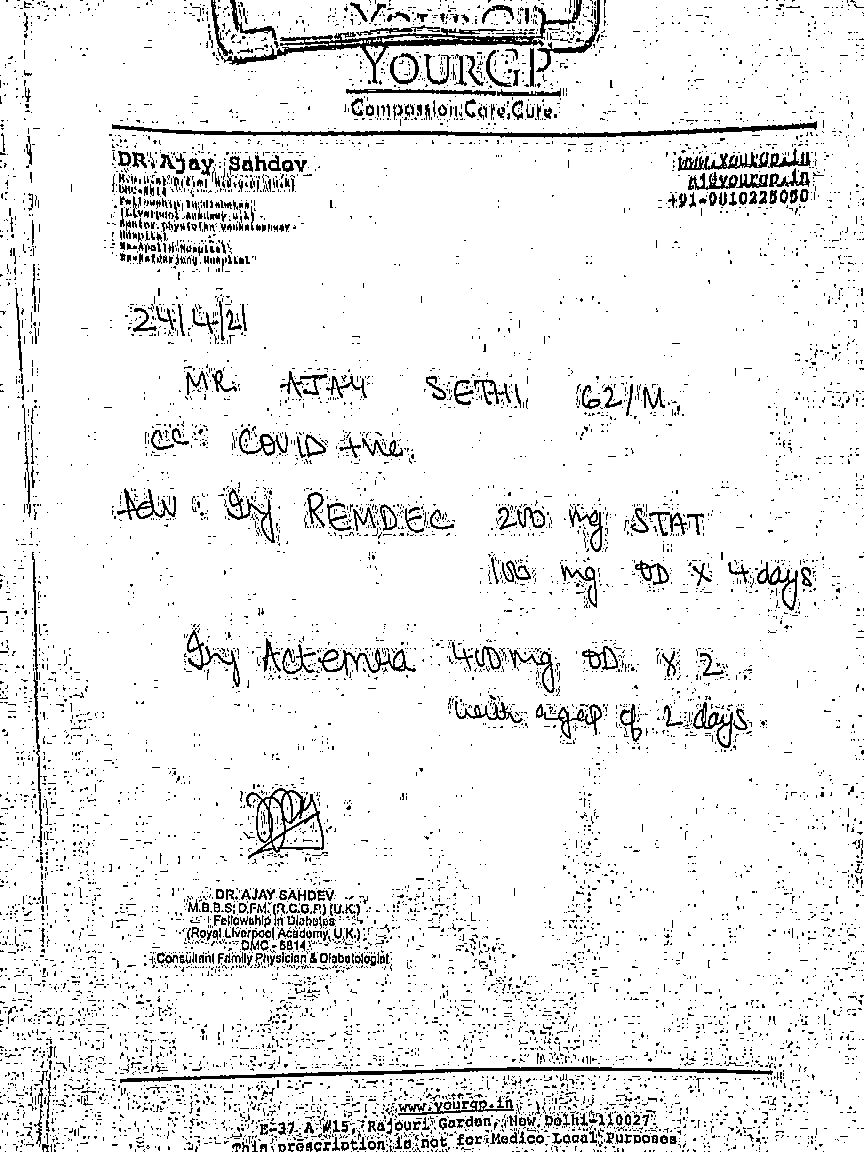 YOURGP
Compassion.Care.Cure.
DR.Ajay Sahdev
www.yourgp.in
+91-9810225050
Fellowship in diabetes
(Liverpool academy u.k)
Senior physician venkateshwar
Hospital
Ex-Apollo Hospital
Ex-Safdarjung Hospital
24/4/21
MR. AJAY SETHI 62/M.
CC: COVID +ve.
Adv: Inj REMDEC 200 mg STAT
100 mg OD X 4 days
Inj Actemra 400 mg OD X 2
with a gap of 2 days.
DR. AJAY SAHDEV
M.B.B.S; D.FM. (R.C.G.P.) (U.K.)
Fellowship in Diabetes
(Royal Liverpool Academy, U.K.)
DMC - 5814
Consultant Family Physician & Diabetologist
www.yourgp.in
E-37 A #15, Rajouri Garden, New Delhi-110027
This prescription is not for Medico Legal Purposes